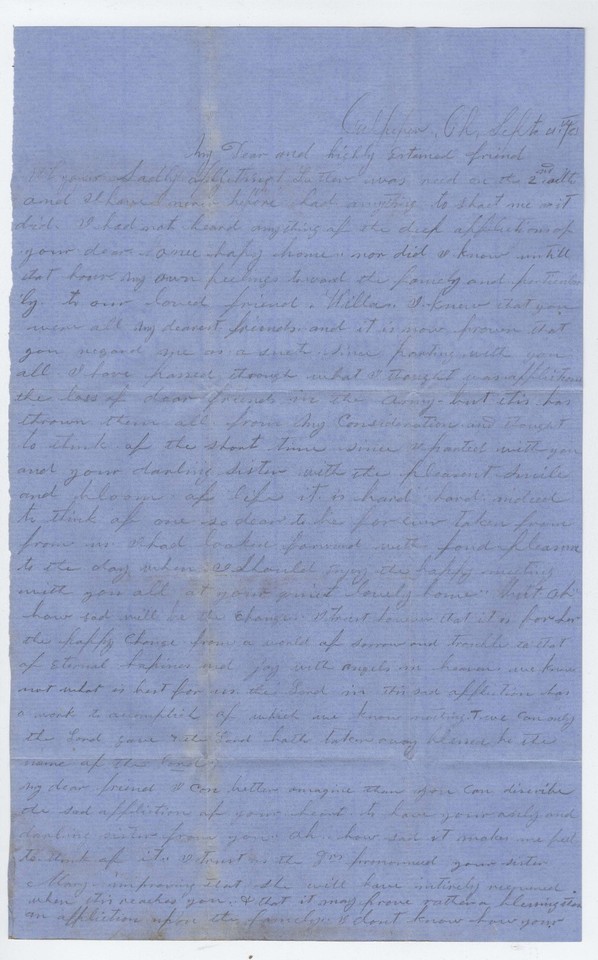 Culpeper, Ch, Sept
My Dear and highly Esteamed friend
your Sadly afflicting letter was recd on the 2nd
and I have never before had anything to shock me as it
did. I had not heard anything of the deep affliction of
your dear once hapy home. nor did I know untill
that hour my own feelings toward the family and particular
ly. to our loved friend. I knew that you
were all my dearest friends and it is now proven that
you regard me as a such. since parting with you
all I have passed through what I thought was affliction
the loss of dear friends in the Army. but this has
thrown them all from my Consideration and thought
to think of the short time since I parted with you
and your darling sister with the pleasent smile
and bloom of life it is hard hard indeed
to think of one so dear to be for ever taken from
from us I had looked forward with fond pleasure
to the day when I should enjoy the happy meeting
with you all at your quiet lovely home. But oh
how sad will be the change. I trust however that it is for her
the happy change from a world of sorrow and trouble to that
of Eternal hapiness and joy with angels in heaven. we know
not what is best for us the Lord in this sad affliction has
a work to acomplish of which we know nothing. we can only
the Lord gave & the Lord hath taken away blessed be the
name of the Lord
My dear friend I can better imagine than you can discribe
the sad affliction of your heart to have your only and
darling sister from you. Oh. how sad it makes me feel
to think of it. I trust as the Drs pronounced your sister
Mary improving that she will have intirely recovered
when this reaches you. & that it may prove rather a blessing than
an affliction upon the family. I dont know how your